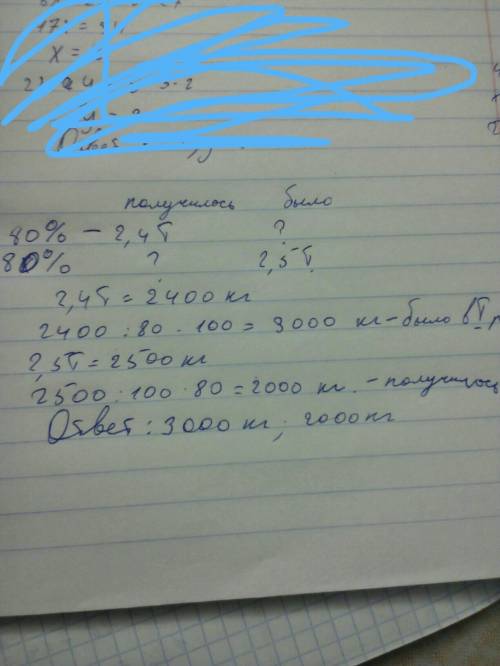 17
X =
получилось было
80% – 2,4т ?
80% ? 2,5т
2,4т = 2400 кг
2400 : 80 · 100 = 3000 кг – было
2,5т = 2500 кг
2500 : 100 · 80 = 2000 кг. – получилось
Ответ: 3000 кг; 2000 кг